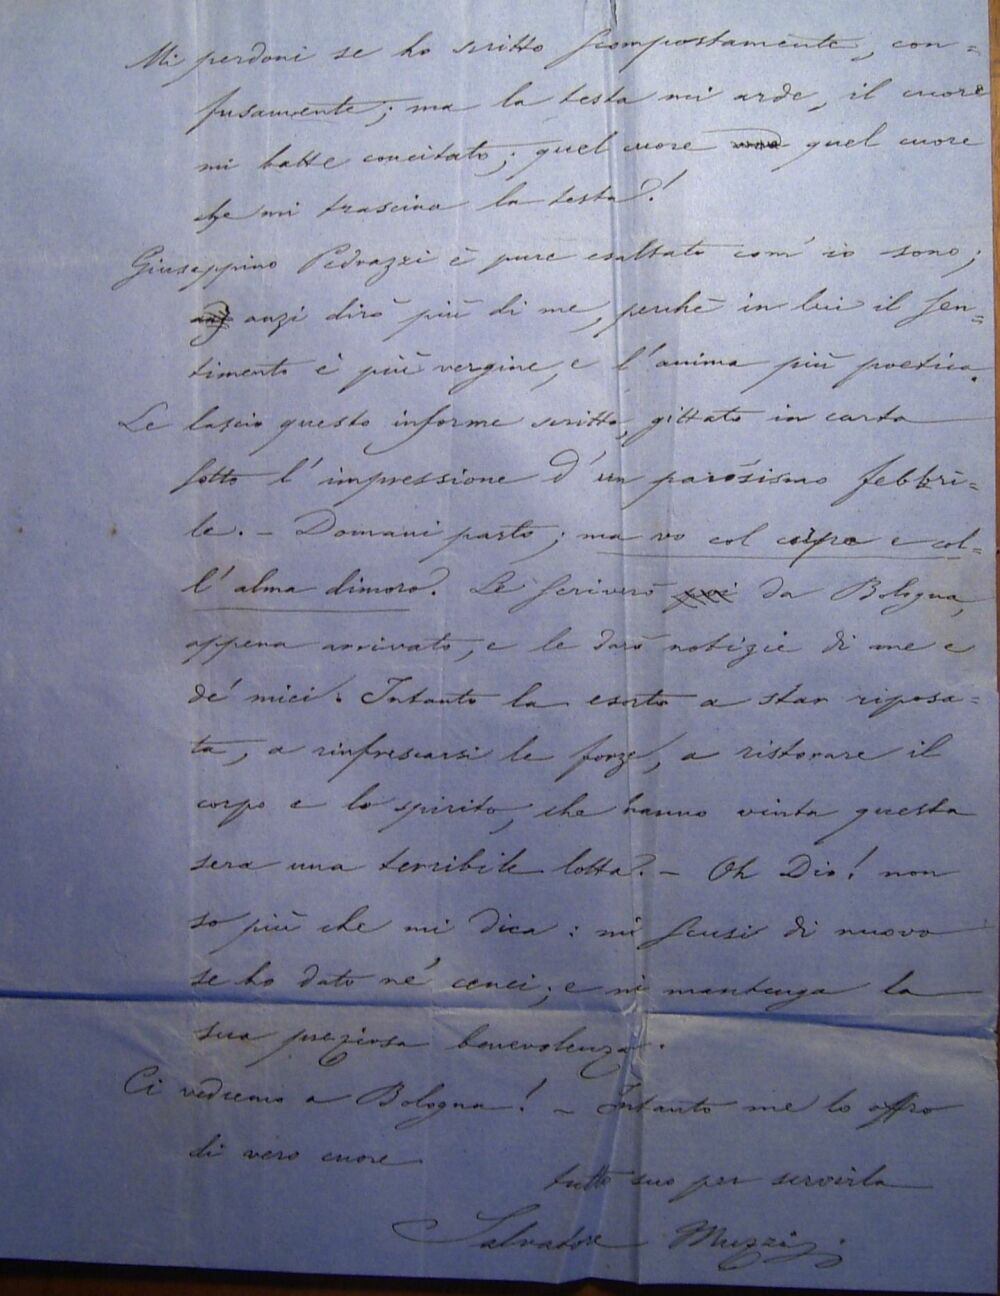 Mi perdoni se ho scritto scompostamente, con=
fusamente; ma la testa mi arde, il cuore
mi batte concitato; quel cuore quel cuore
che mi trascina la testa!
Giuseppino Pedrazzi è pure esaltato com' io sono;
anzi dirò più di me, perchè in lui il sen=
timento è più vergine, e l'anima più poetica.
Le lascio questo informe scritto, gittato in carta
sotto l'impressione d'un parosismo febbri=
le. - Domani parto; ma vo col corpo e col=
l'alma dimoro. Le scriverò da Bologna,
appena arrivato, e le darò notizie di me e
de' miei. Intanto la esorto a star riposa=
ta, a rinfrescarsi le forze, a ristorare il
corpo e lo spirito, che hanno vinta questa
sera una terribile lotta. - Oh Dio! non
so più che mi dica: mi scusi di nuovo
se ho dato ne' cenci; e mi mantenga la
sua preziosa benevolenza.
Ci vedremo a Bologna! - Intanto me lo offro
di vero cuore
tutto suo per servirla
Salvatore Muzzi